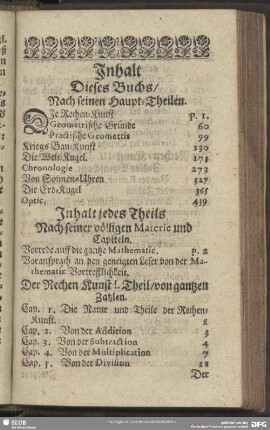 Inhalt
Dieses Buchs/
Nach seinen Haupt-Theilen.
Die Rechen-Kunst p. 1.
Geometrische Gründe 60
Practische Geometria 99
Kriegs Bau-Kunst 130
Die Welt-Kugel. 173
Chronologie 273
Von Sonnen-Uhren 327
Die Erd-Kugel 365
Optic. 439
Inhalt jedes Theils
Nach seiner völligen Materie und
Capiteln.
Vorrede auff die gantze Mathematic. p. 2
Voransprach an den geneigten Leser von der Ma-
thematic Vortrefflichkeit.
Der Rechen Kunst I. Theil/ von gantzen
Zahlen.
Cap. 1. Die Natur und Theile der Rechen-
Kunst.
Cap. 2. Von der Addition 3
Cap. 3. Von der Subtraction 4
Cap. 4. Von der Multiplication 7
Cap. 5. Von der Division 11
Der
SLUB
DFG